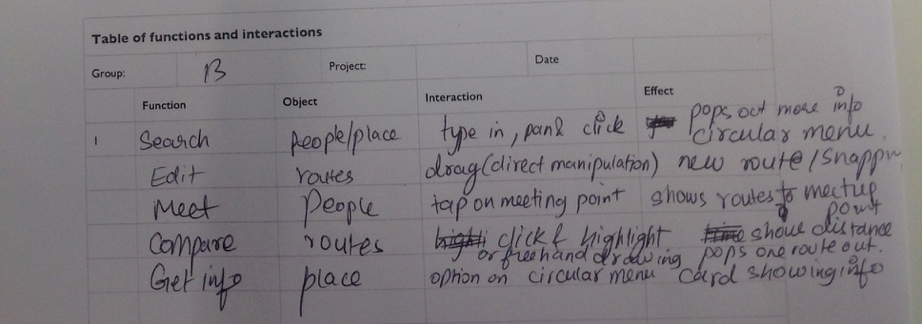 Table of functions and interactions
Group: B Project: Date
Function Object Interaction Effect
pops out more info
1 Search people/place type in, pan & click circular menu.
Edit routes drag (direct manipulation) new route / snappin
Meet People tap on meeting point shows routes to meetup
point
Compare routes click & highlight show distance
or freehand drawing pops one route out.
Get info place option on circular menu card showing info